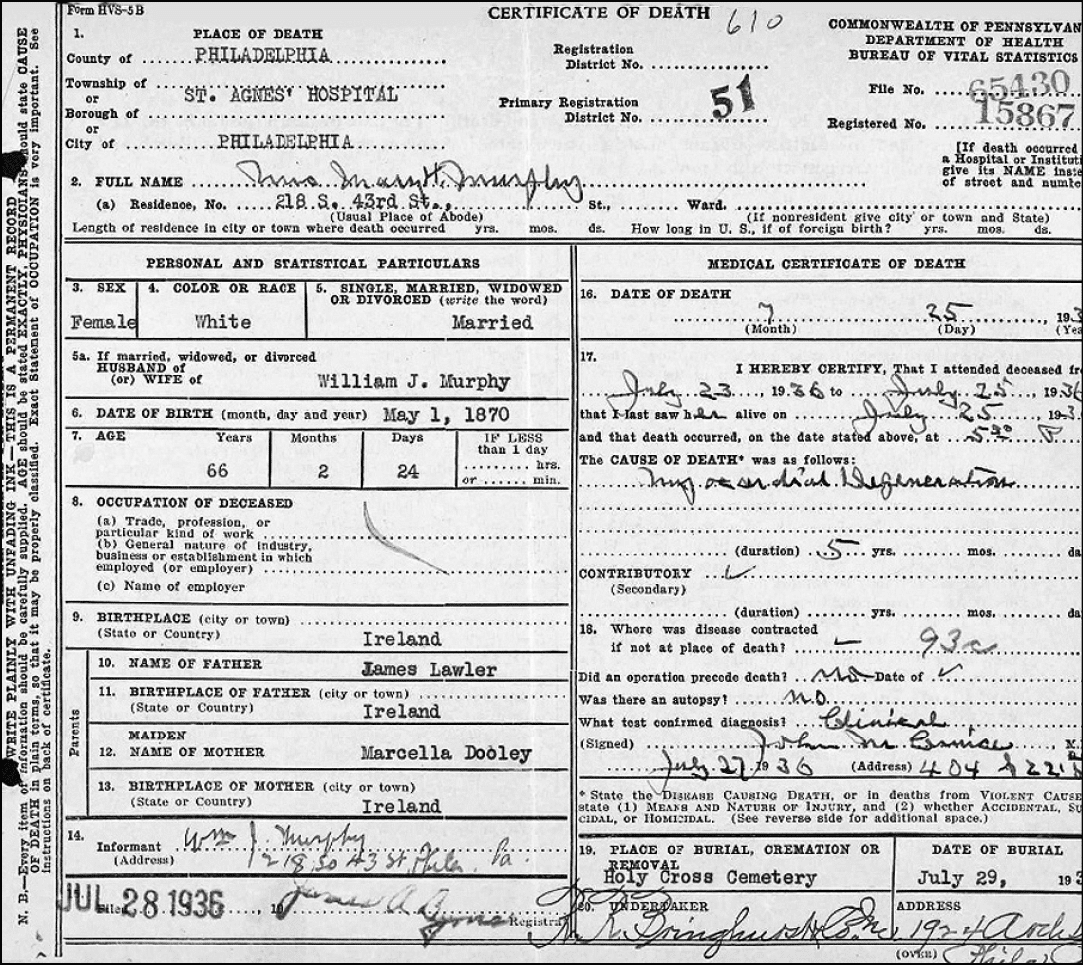 Form HVS-5 B
CERTIFICATE OF DEATH
610
COMMONWEALTH OF PENNSYLVAN
DEPARTMENT OF HEALTH
BUREAU OF VITAL STATISTICS
1. PLACE OF DEATH
County of PHILADELPHIA
Township of
or
Borough of ST. AGNES' HOSPITAL
or
City of PHILADELPHIA
Registration
District No.
Primary Registration
District No. 51
File No. 65430
Registered No. 15867
[If death occurred
a Hospital or Instituti
give its NAME inste
of street and numbe
2. FULL NAME Mrs Mary H. Murphy
(a) Residence, No. 218 S. 43rd St., St., Ward.
(Usual Place of Abode) (If nonresident give city or town and State)
Length of residence in city or town where death occurred yrs. mos. ds. How long in U. S., if of foreign birth? yrs. mos. ds.
PERSONAL AND STATISTICAL PARTICULARS
3. SEX
Female
4. COLOR OR RACE
White
5. SINGLE, MARRIED, WIDOWED
OR DIVORCED (write the word)
Married
5a. If married, widowed, or divorced
HUSBAND of
(or) WIFE of William J. Murphy
6. DATE OF BIRTH (month, day and year) May 1, 1870
7. AGE Years Months Days IF LESS
than 1 day
66 2 24 hrs.
or min.
8. OCCUPATION OF DECEASED
(a) Trade, profession, or
particular kind of work
(b) General nature of industry,
business or establishment in which
employed (or employer)
(c) Name of employer
9. BIRTHPLACE (city or town)
(State or Country) Ireland
Parents
10. NAME OF FATHER James Lawler
11. BIRTHPLACE OF FATHER (city or town)
(State or Country) Ireland
12. MAIDEN
NAME OF MOTHER Marcella Dooley
13. BIRTHPLACE OF MOTHER (city or town)
(State or Country) Ireland
14.
Informant Wm J. Murphy
(Address) 218 So 43 St, Phila. Pa.
JUL 28 1936
Filed 19 James A. Registra
MEDICAL CERTIFICATE OF DEATH
16. DATE OF DEATH
7 25 , 193
(Month) (Day) (Yea
17.
I HEREBY CERTIFY, That I attended deceased fro
July 23, 1936 to July 25 1936
that I last saw her alive on July 25 193
and that death occurred, on the date stated above, at P
The CAUSE OF DEATH* was as follows:
Myocardial Degeneration
(duration) 5 yrs. mos. da
CONTRIBUTORY
(Secondary)
(duration) yrs. mos. da
18. Where was disease contracted
if not at place of death? 93c
Did an operation precede death? no Date of
Was there an autopsy? no
What test confirmed diagnosis? Clinical
(Signed) John M.
July 27 1936 (Address) 404 S 22
* State the DISEASE CAUSING DEATH, or in deaths from VIOLENT CAUSE
state (1) MEANS AND NATURE OF INJURY, and (2) whether ACCIDENTAL, SU
CIDAL, or HOMICIDAL. (See reverse side for additional space.)
19. PLACE OF BURIAL, CREMATION OR
REMOVAL
Holy Cross Cemetery
DATE OF BURIAL
July 29, 193
20. UNDERTAKER
R. R. Bringhurst Co. Inc.
ADDRESS
1924 Arch
(OVER) Phila
WRITE PLAINLY WITH UNFADING INK—THIS IS A PERMANENT RECORD
N. B.—Every item of information should be carefully supplied. AGE should be stated EXACTLY. PHYSICIANS should state CAUSE
OF DEATH in plain terms, so that it may be properly classified. Exact Statement of OCCUPATION is very important. See
instructions on back of certificate.